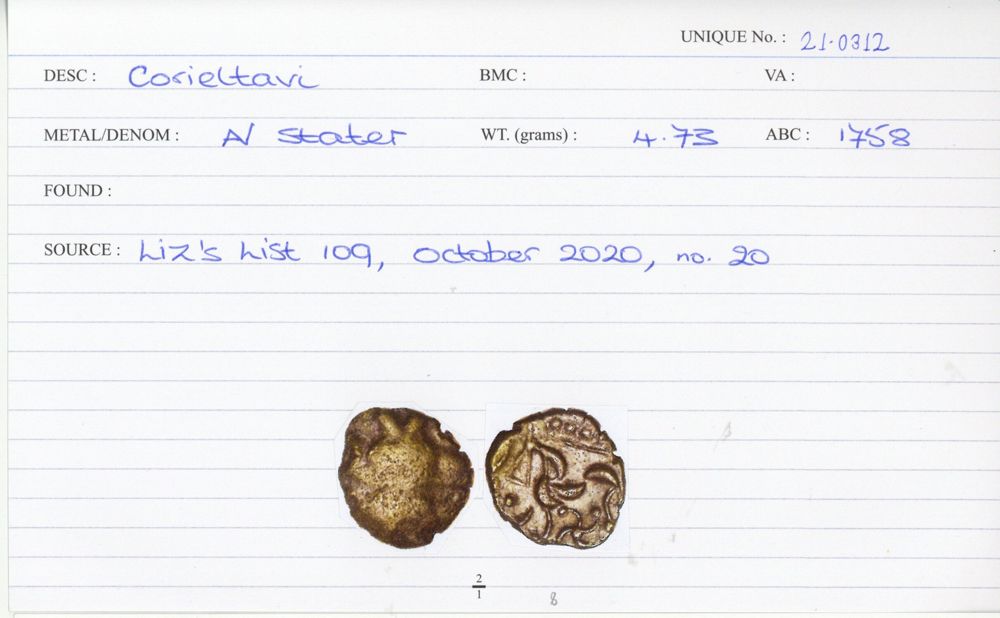 UNIQUE No. : 21.0312
DESC : Corieltavi BMC : VA :
METAL/DENOM : AV Stater WT. (grams) : 4.73 ABC : 1758
FOUND :
SOURCE : Liz's List 109, October 2020, no. 20
2
1
8